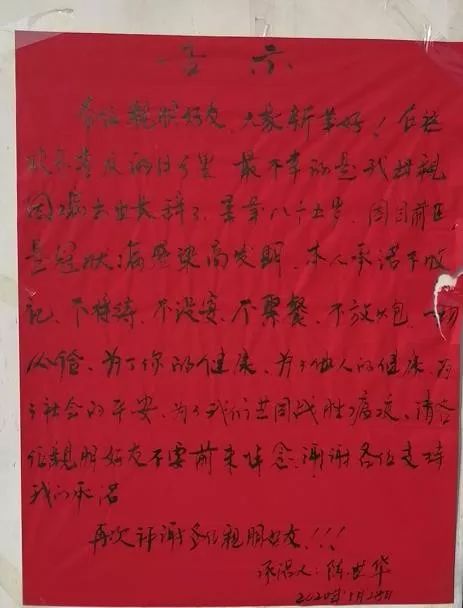 告示
各位親朋好友，大家新年好！在这
欢乐喜庆的日子里 最不幸的是我母親
因病去世长辞了，享年八十五岁，因目前正
是冠状病感染高发期，本人承诺不收
礼、不接待、不设宴、不聚餐、不放炮，一切
从俭、为了你的健康、为了他人的健康、为
了社会的平安、为了我们共同战胜病疫、请各
位親朋好友不要前来悼念，谢谢各位支持
我的承诺
再次许谢各位親朋好友！！！
承诺人：陈世华
2020年1月28日